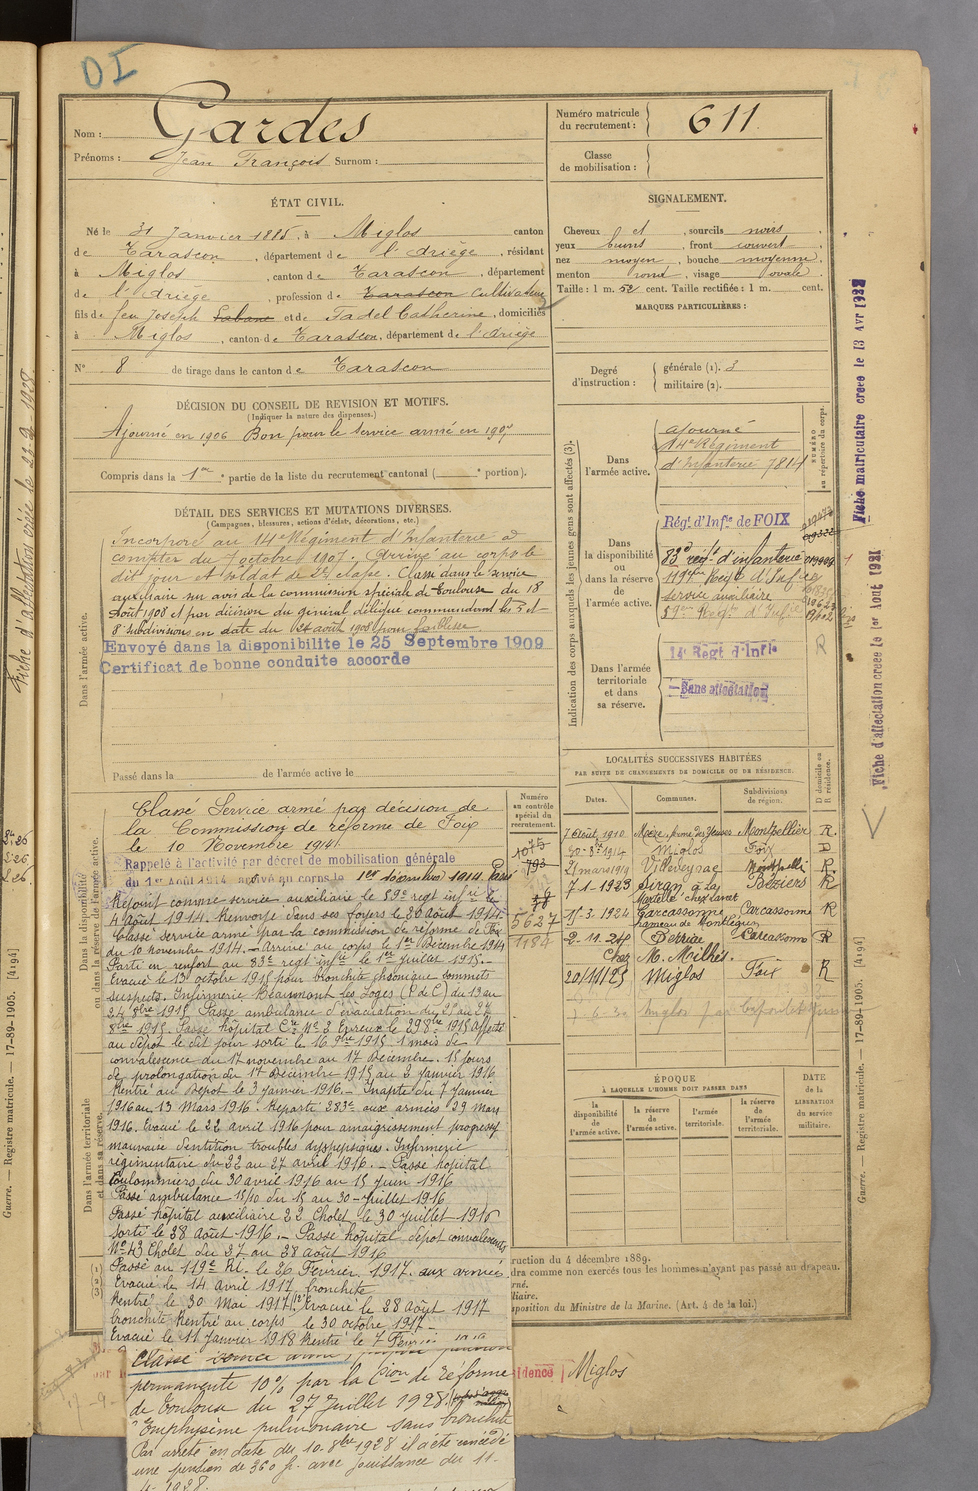 DI
Nom : Gardes
Prénoms : Jean François Surnom :
Numéro matricule du recrutement : 611
Classe de mobilisation :
ÉTAT CIVIL.
Né le 31 Janvier 1885, à Miglos canton
de Tarascon, département de l'Ariège, résidant
à Miglos, canton de Tarascon, département
de l'Ariège, profession de Tarascon cultivateur
fils de feu Joseph et de Tadel Catherine, domiciliés
à Miglos, canton de Tarascon, département de l'Ariège
N° 8 de tirage dans le canton de Tarascon
SIGNALEMENT.
Cheveux et, sourcils noirs,
yeux bruns, front couvert,
nez moyen, bouche moyenne,
menton rond, visage ovale.
Taille : 1 m. 52 cent. Taille rectifiée : 1 m. cent.
MARQUES PARTICULIÈRES :
Degré d'instruction : générale (1). 3
militaire (2).
DÉCISION DU CONSEIL DE REVISION ET MOTIFS.
(Indiquer la nature des dispenses.)
Ajourné en 1906 Bon pour le service armé en 1907
Compris dans la 1re partie de la liste du recrutement cantonal ( e portion).
DÉTAIL DES SERVICES ET MUTATIONS DIVERSES.
(Campagnes, blessures, actions d'éclat, décorations, etc.)
Dans l'armée active.
Incorporé au 14e Régiment d'Infanterie à
compter du 7 octobre 1907. Arrivé au corps le
dit jour et soldat de 2e classe. Classé dans le service
auxiliaire sur avis de la commission spéciale de Toulouse du 18
Août 1908 et par décision du général délégué commandant les 5 et
8e subdivisions en date du 24 août 1908 pour faiblesse.
Envoyé dans la disponibilité le 25 Septembre 1909
Certificat de bonne conduite accordé
Passé dans la de l'armée active le
Indication des corps auxquels les jeunes gens sont affectés (3).
NUMÉRO au répertoire du corps.
Dans l'armée active.
ajourné
14e Régiment
d'Infanterie 7814
Dans la disponibilité ou dans la réserve de l'armée active.
Régt. d'Infie de FOIX
83e régt d'infanterie
119ème Regt d'Infie
service auxiliaire
59ème Regt d'Infie
R
Dans l'armée territoriale et dans sa réserve.
14e Régt d'Infie
Sans affectation
LOCALITÉS SUCCESSIVES HABITÉES
PAR SUITE DE CHANGEMENTS DE DOMICILE OU DE RÉSIDENCE.
Dates. Communes. Subdivisions de région. D domicile ou R résidence.
7 Août 1910 Mèze Montpellier R.
30-8re 1914 Miglos Foix D
21 mars 1919 Villeveyrac Montpelli R.
7-1-1923 Siran Béziers R
15-3-1924 Carcassonne hameau de Montlegun Carcassonne R
2-11-24 Chez M. Meilhes Carcassonne R
20/11/25 Miglos Foix R
Miglos
ÉPOQUE
À LAQUELLE L'HOMME DOIT PASSER DANS
la disponibilité de l'armée active.
la réserve de l'armée active.
l'armée territoriale.
la réserve de l'armée territoriale.
DATE de la LIBÉRATION du service militaire.
Dans la disponibilité ou dans la réserve de l'armée active.
Numéro au contrôle spécial du recrutement.
1075
793
5627
1184
Classé Service armé par décision de
la Commission de réforme de Foix
le 10 Novembre 1914
Rappelé à l'activité par décret de mobilisation générale
du 1er Août 1914 arrivé au corps le 1er Décembre 1914
Rejoint comme service auxiliaire le 59e regt infie le
4 Août 1914. Renvoyé dans ses foyers le 30 Août 1914.
Classé service armé par la commission de réforme de Foix
du 10 novembre 1914. – Arrivé au corps le 1er Décembre 1914
Parti en renfort au 83e regt infie le 1er juillet 1915. –
Evacué le 13 octobre 1915 pour bronchite chronique sommets
suspects. Infirmerie Beaumont les Loges (P de C) du 13 au
24 8bre 1915. Passé ambulance d'évacuation du 21 au 27
8bre 1915. Passé hôpital Cre N° 3 Evreux le 29 8bre 1915 affecté
au dépôt le dit jour sorti le 16 9bre 1915 1 mois de
convalescence du 17 novembre au 17 Décembre. 15 jours
de prolongation du 17 Décembre 1915 au 2 Janvier 1916
Rentré au Dépôt le 3 Janvier 1916. – Inapte du 7 Janvier
1916 au 13 Mars 1916. Reparti 283e aux armées 29 Mars
1916. Evacué le 22 avril 1916 pour amaigrissement progressif
mauvaise dentition troubles dyspepsiques. Infirmerie
régimentaire du 22 au 27 avril 1916. – Passé hôpital
Coulommiers du 30 avril 1916 au 15 Juin 1916
Passé ambulance 15/10 du 15 au 30 – Juillet 1916
Passé hôpital auxiliaire 22 Cholet le 30 Juillet 1916
sorti le 28 Août 1916. – Passé hôpital dépôt convalescents
N° 43 Cholet du 27 au 28 août 1916
Passé au 119e R.I. le 26 Février 1917. aux armées
Evacué le 14 Avril 1917 bronchite
Rentré le 30 Mai 1917 Evacué le 28 Août 1917
bronchite Rentré au corps le 30 octobre 1917 –
Evacué le 11 Janvier 1918 Rentré le 7 Février
Dans l'armée territoriale et dans sa réserve.
(1)
(2)
(3)
ruction du 4 décembre 1889.
dra comme non exercés tous les hommes n'ayant pas passé au drapeau.
rné.
liaire.
sposition du Ministre de la Marine. (Art. 4 de la loi.)
idence Miglos
Classé service armé, pension
permanente 10% par la Cion de Réforme
de Toulouse du 27 Juillet 1928.
"Emphysème pulmonaire sans bronchite
Par arrêté en date du 10 8bre 1928 il a été concédé
une pension de 360 f. avec jouissance du 11-
4-1928.
Fiche matriculaire créée le 13 Avr 1927
Fiche d'affectation créée le 1er Aout 1921
Fiche d'affectation créée le 23-9 1928
Guerre. — Registre matricule. — 17-89-1905. [4194]
Guerre. — Registre matricule. — 17-89-1905. [4194]